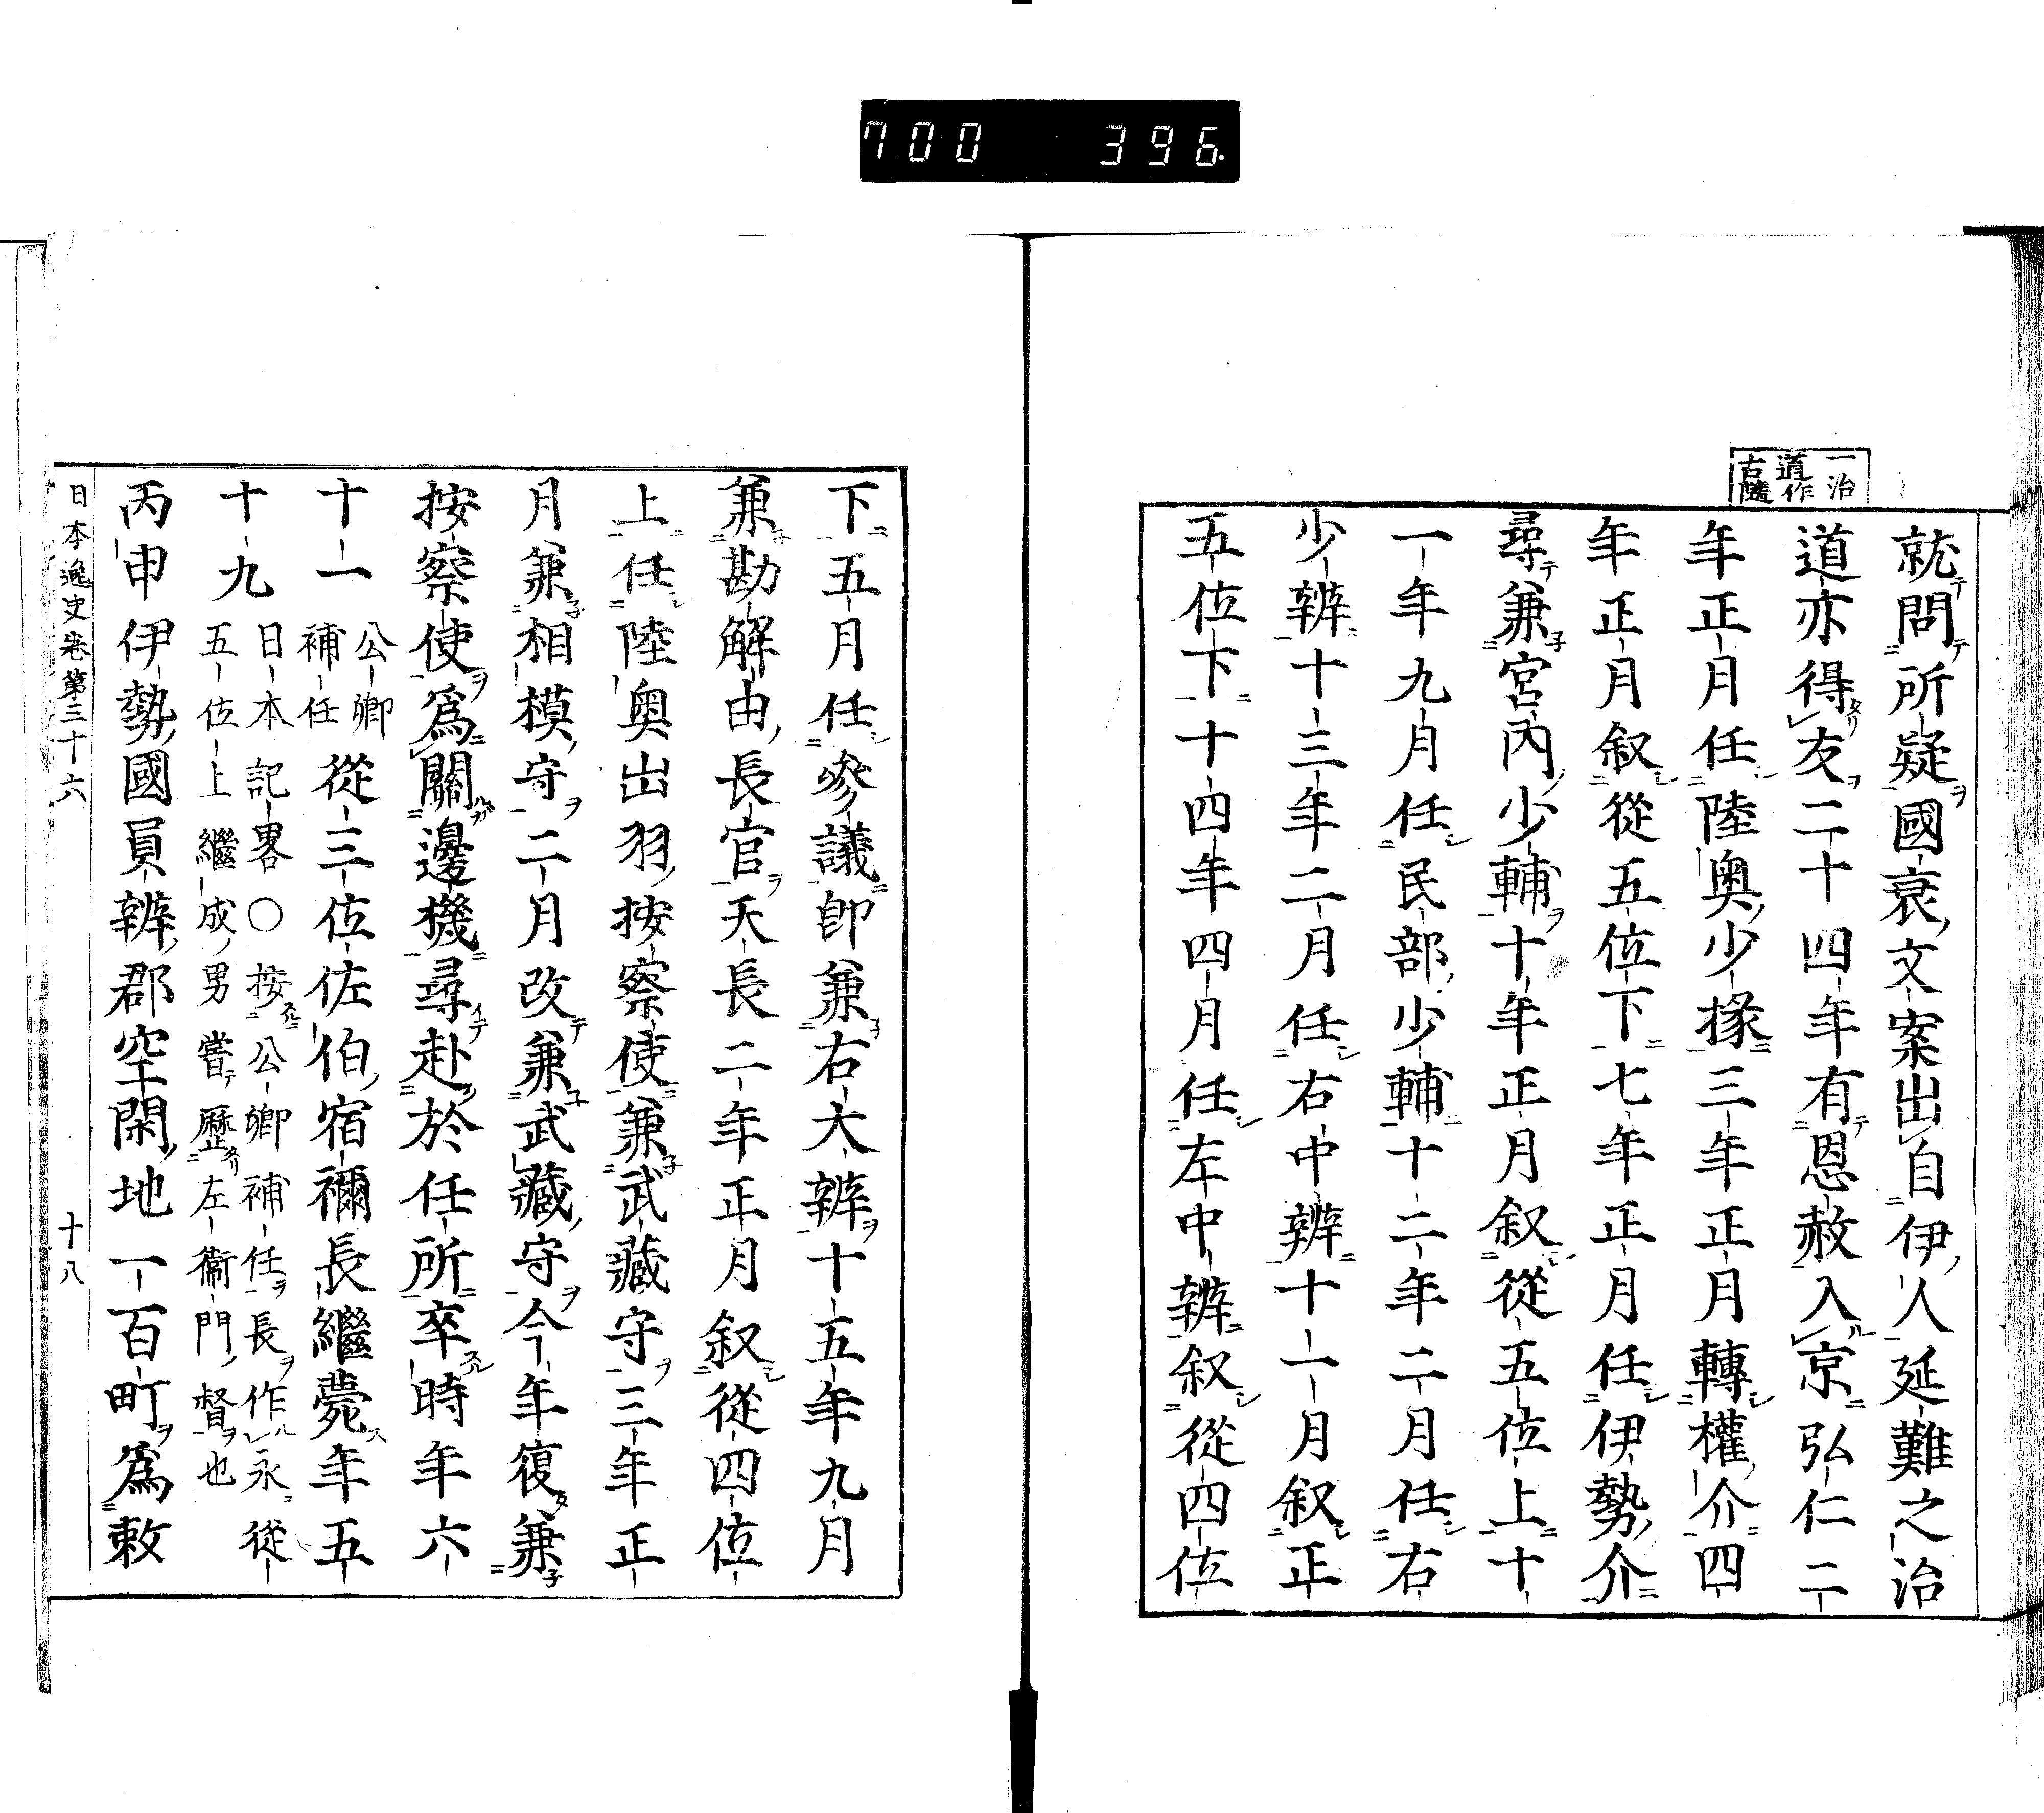 700 396.
一治
道作
古隨
就テ問テ所疑ヲ國衰文案出自伊人延難之治
道亦得タリ友ヲ二十四年有テ恩赦入ル京弘仁二
年正月任陸奥少掾三年正月轉權介四
年正月叙從五位下七年正月任伊勢介
尋テ兼子宮內少輔ヲ十年正月叙從五位上十
一年九月任民部少輔十二年二月任右
少辨十三年二月任右中辨十一月叙正
五位下十四年四月任左中辨叙從四位
下五月任參議卽兼子右大辨ヲ十五年九月
兼子勘解由長官ヲ天長二年正月叙從四位
上任陸奥出羽按察使兼子武藏守ヲ三年正
月兼子相模守ヲ二月改テ兼子武藏守ヲ今年復タ兼子
按察使ヲ爲關邊機尋イテ赴於任所卒スル時年六
十一公卿
補任從三位佐伯宿禰長繼薨ス年五
十九日本記畧〇按スルニ公卿補任ヲ長ヲ作ルハ永ニ從
五位上繼成男嘗テ歷タリ左衞門督ヲ也
丙申伊勢國員辨郡空閑地一百町ヲ爲敕
日本逸史卷第三十六 十八